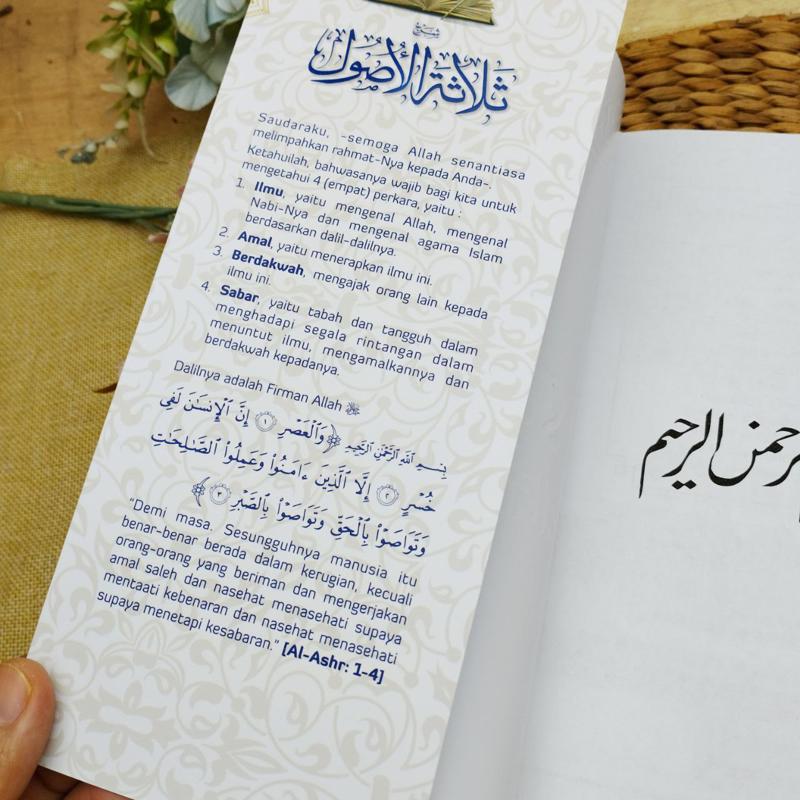 شرح
ثلاثة الأصول
Saudaraku, -semoga Allah senantiasa
melimpahkan rahmat-Nya kepada Anda-.
Ketahuilah, bahwasanya wajib bagi kita untuk
mengetahui 4 (empat) perkara, yaitu :
1. Ilmu, yaitu mengenal Allah, mengenal
Nabi-Nya dan mengenal agama Islam
berdasarkan dalil-dalilnya.
2. Amal, yaitu menerapkan ilmu ini.
3. Berdakwah, mengajak orang lain kepada
ilmu ini.
4. Sabar, yaitu tabah dan tangguh dalam
menghadapi segala rintangan dalam
menuntut ilmu, mengamalkannya dan
berdakwah kepadanya.
Dalilnya adalah Firman Allah ﷻ
بِسْمِ اللَّهِ الرَّحْمَٰنِ الرَّحِيمِ ﴿وَٱلْعَصْرِ ١ إِنَّ ٱلْإِنسَٰنَ لَفِى
خُسْرٍ ٢ إِلَّا ٱلَّذِينَ ءَامَنُوا۟ وَعَمِلُوا۟ ٱلصَّٰلِحَٰتِ
وَتَوَاصَوْا۟ بِٱلْحَقِّ وَتَوَاصَوْا۟ بِٱلصَّبْرِ ٣﴾
"Demi masa. Sesungguhnya manusia itu
benar-benar berada dalam kerugian, kecuali
orang-orang yang beriman dan mengerjakan
amal saleh dan nasehat menasehati supaya
mentaati kebenaran dan nasehat menasehati
supaya menetapi kesabaran." [Al-Ashr: 1-4]
الرحيم